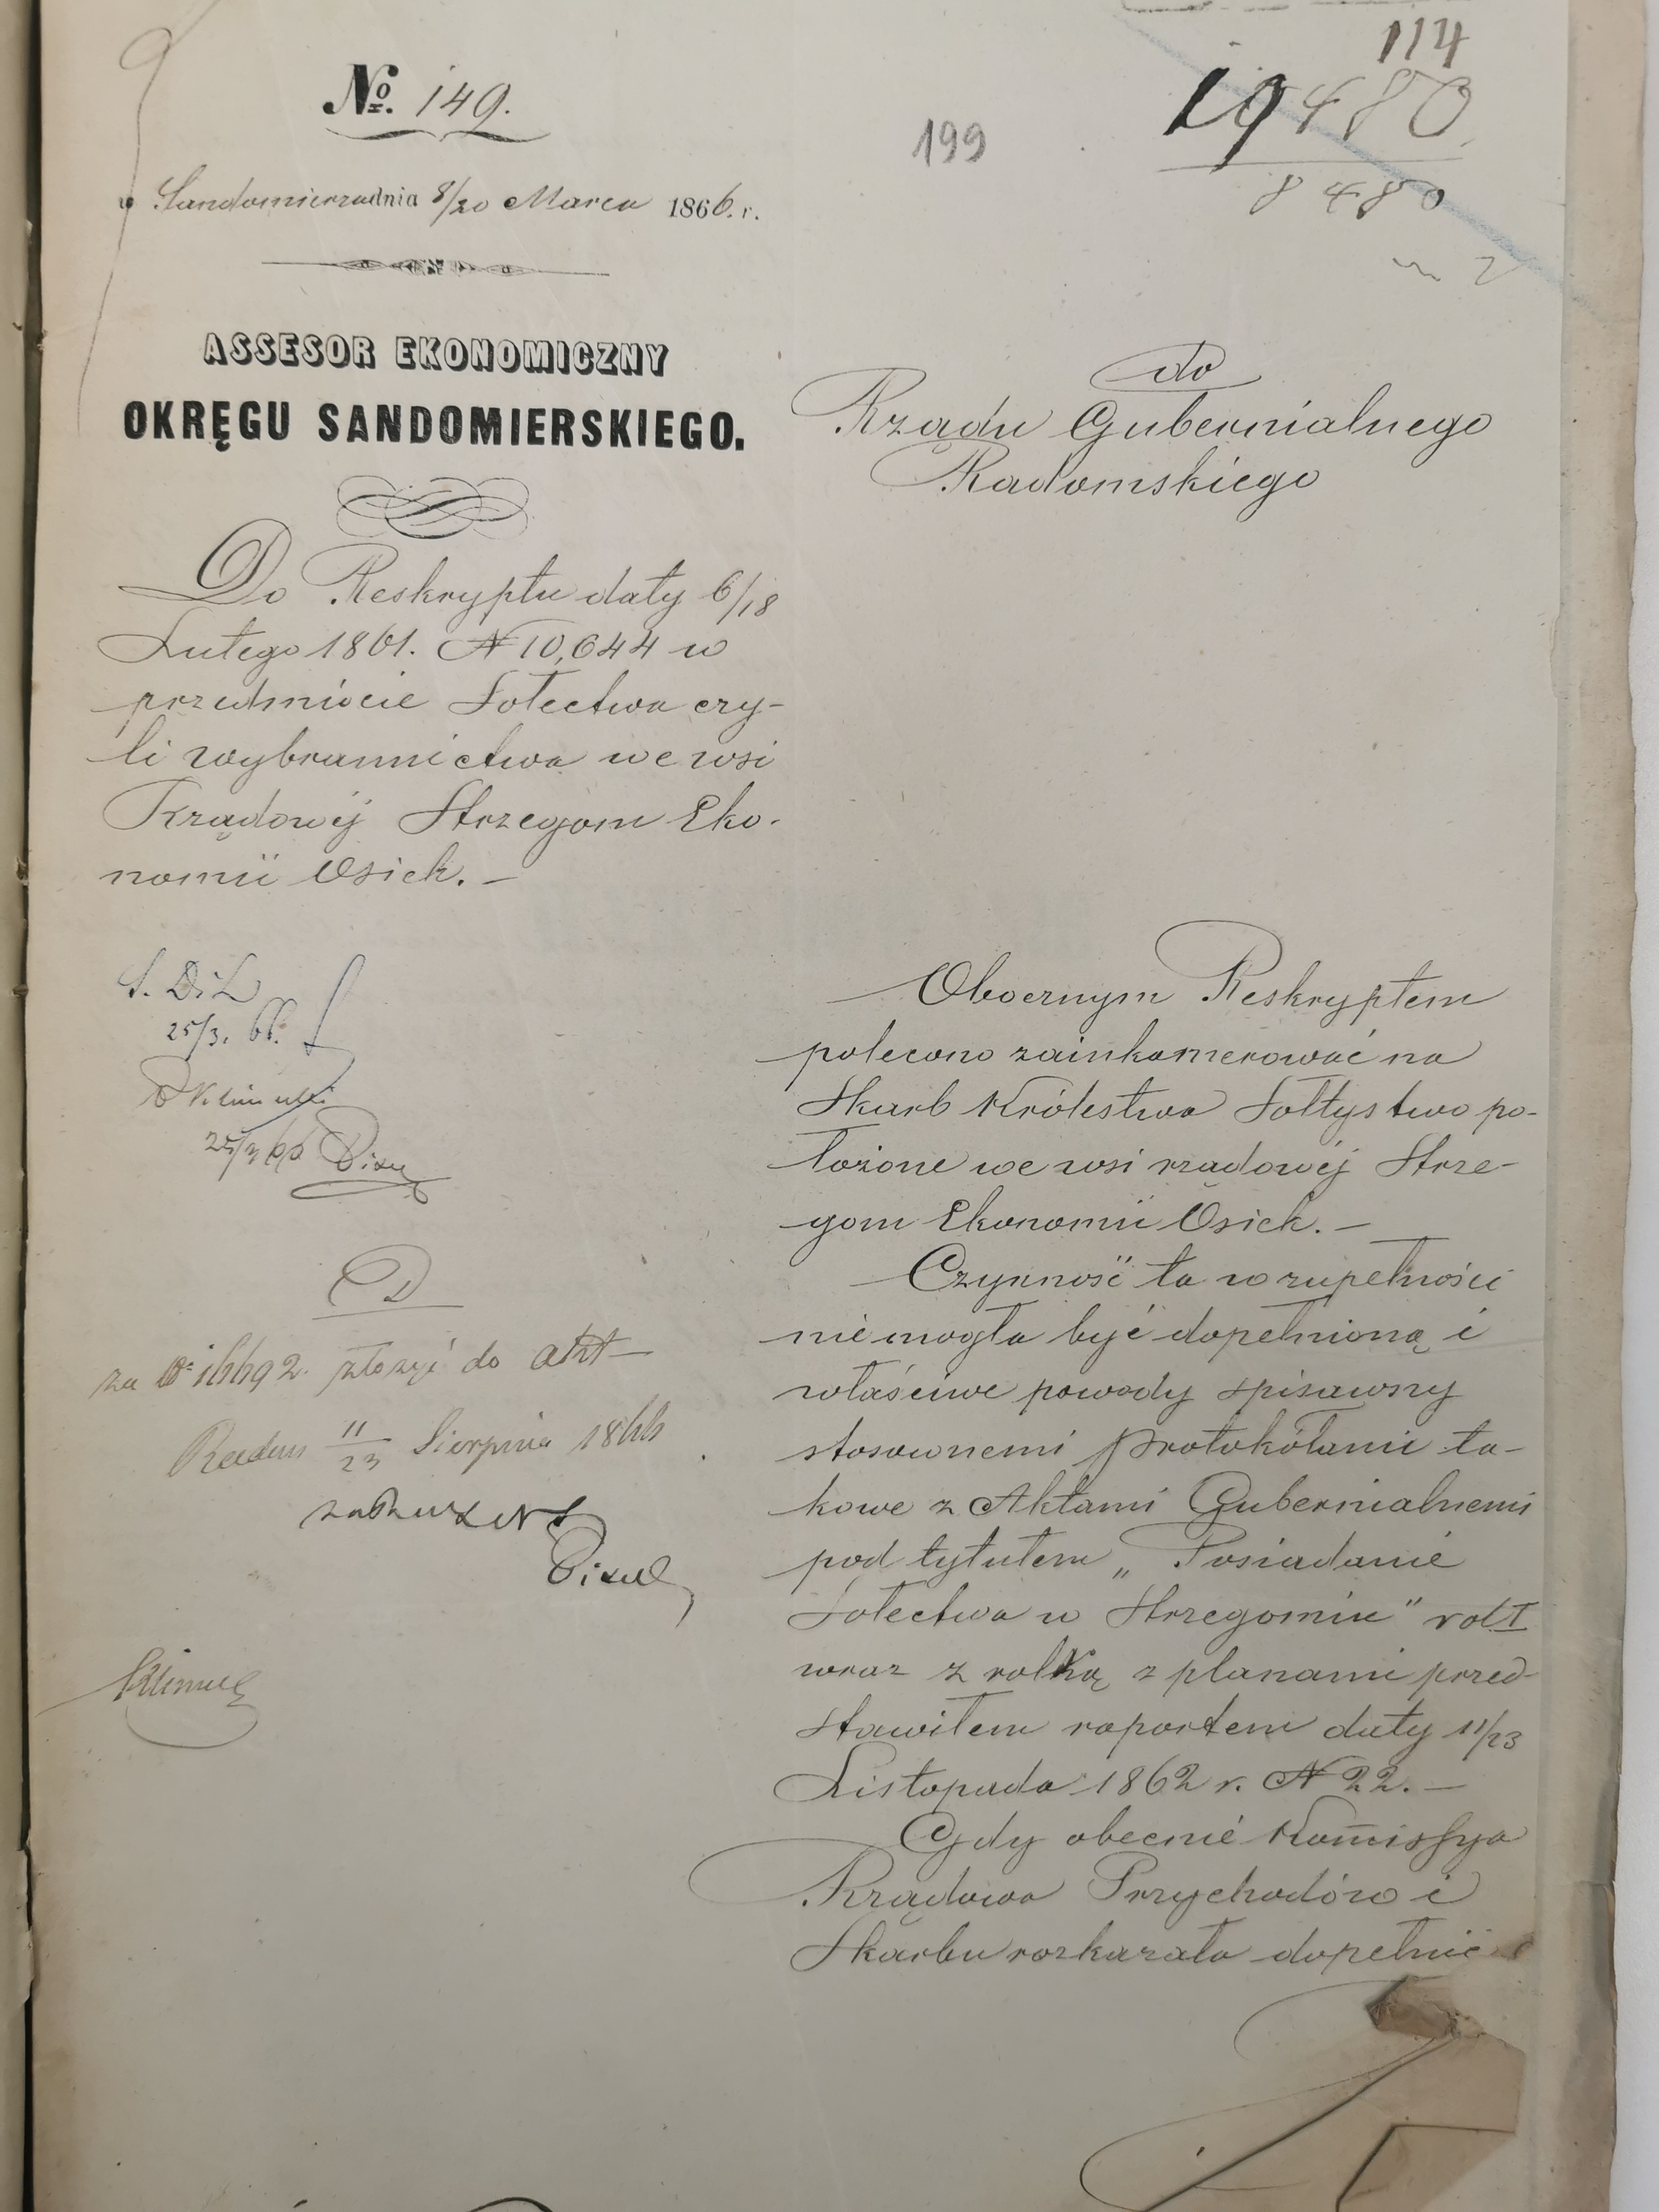 114
No. 149.
199
19480
8480
w Sandomierzu dnia 8/20 Marca 1866. r.
ASSESOR EKONOMICZNY
OKRĘGU SANDOMIERSKIEGO.
do
Rządu Gubernialnego
Radomskiego
Do Reskryptu daty 6/18
Lutego 1861. N 10,644 w
przedmiocie Sołectwa czy-
li wybrannictwa we wsi
Rządowéj Strzegom Eko-
nomii Osiek. –
S. D i L
25/3. 66.
25/3 66
D
za N 16692. złożyć do akt
Radom 11/23 Sierpnia 1866
Obocznym Reskryptem
polecono zainkamerować na
Skarb Królestwa Sołtystwo po-
łożone we wsi rządowéj Strze-
gom Ekonomii Osiek. –
Czynność ta w zupełności
nie mogła być dopełnioną i
właściwe powody spisawszy
stosownemi protokółami ta-
kowe z Aktami Gubernialnemi
pod tytułem „Posiadanie
Sołectwa w Strzegomiu" vol I
wraz z rolką z planami przed-
stawiłem raportem daty 11/23
Listopada 1862 r. N 22. –
Gdy obecnie Kom̄issya
Rządowa Przychodów i
Skarbu rozkazała dopełnić